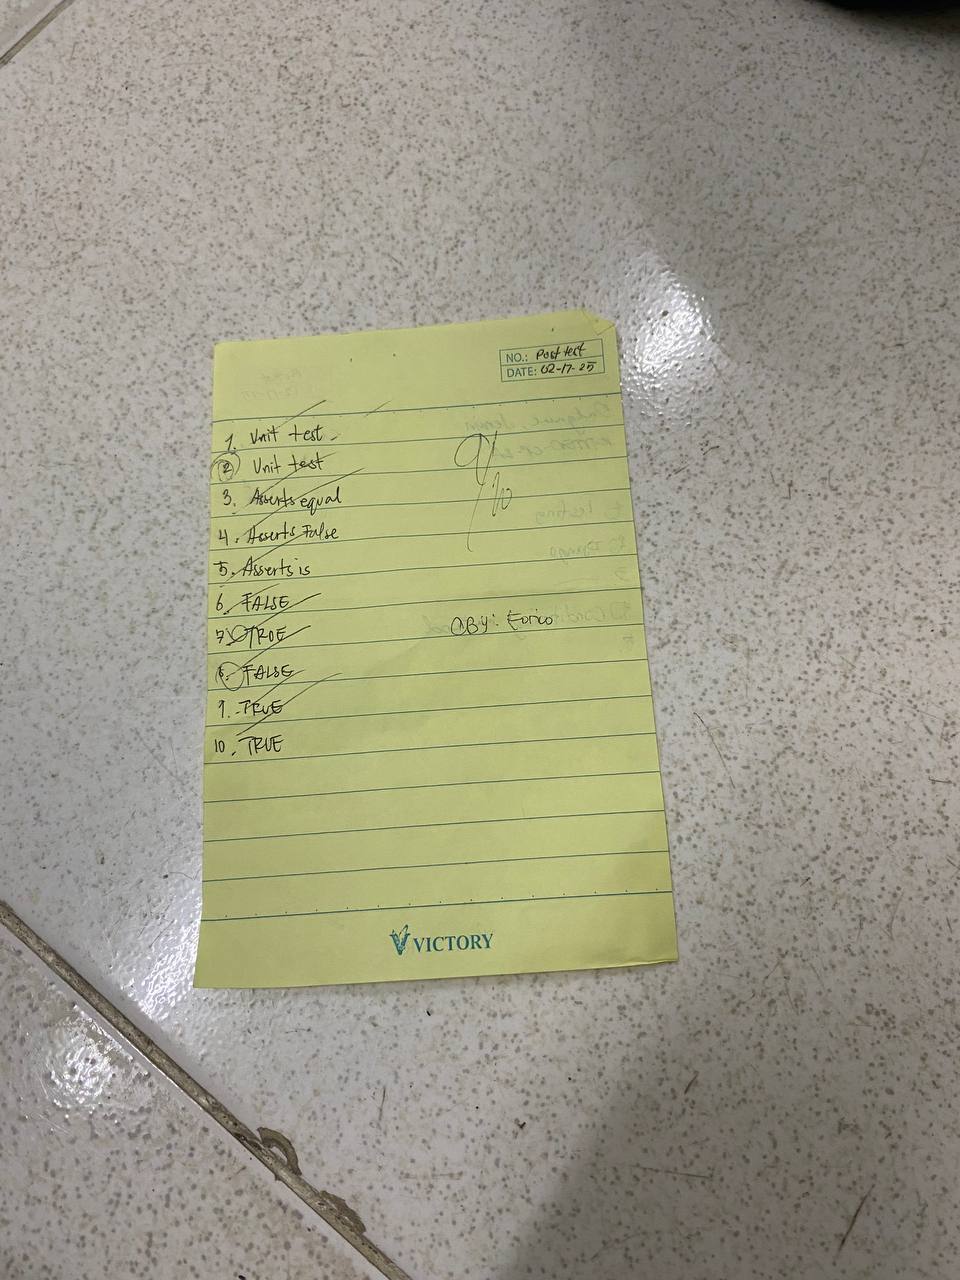 NO.: Post test
DATE: 02-17-25
1. Unit test
2 Unit test
3. Asserts equal
4. Asserts False
5. Asserts is
6. FALSE
7. TRUE
8. FALSE
9. TRUE
10. TRUE
9/10
CBY: Enrico
VICTORY